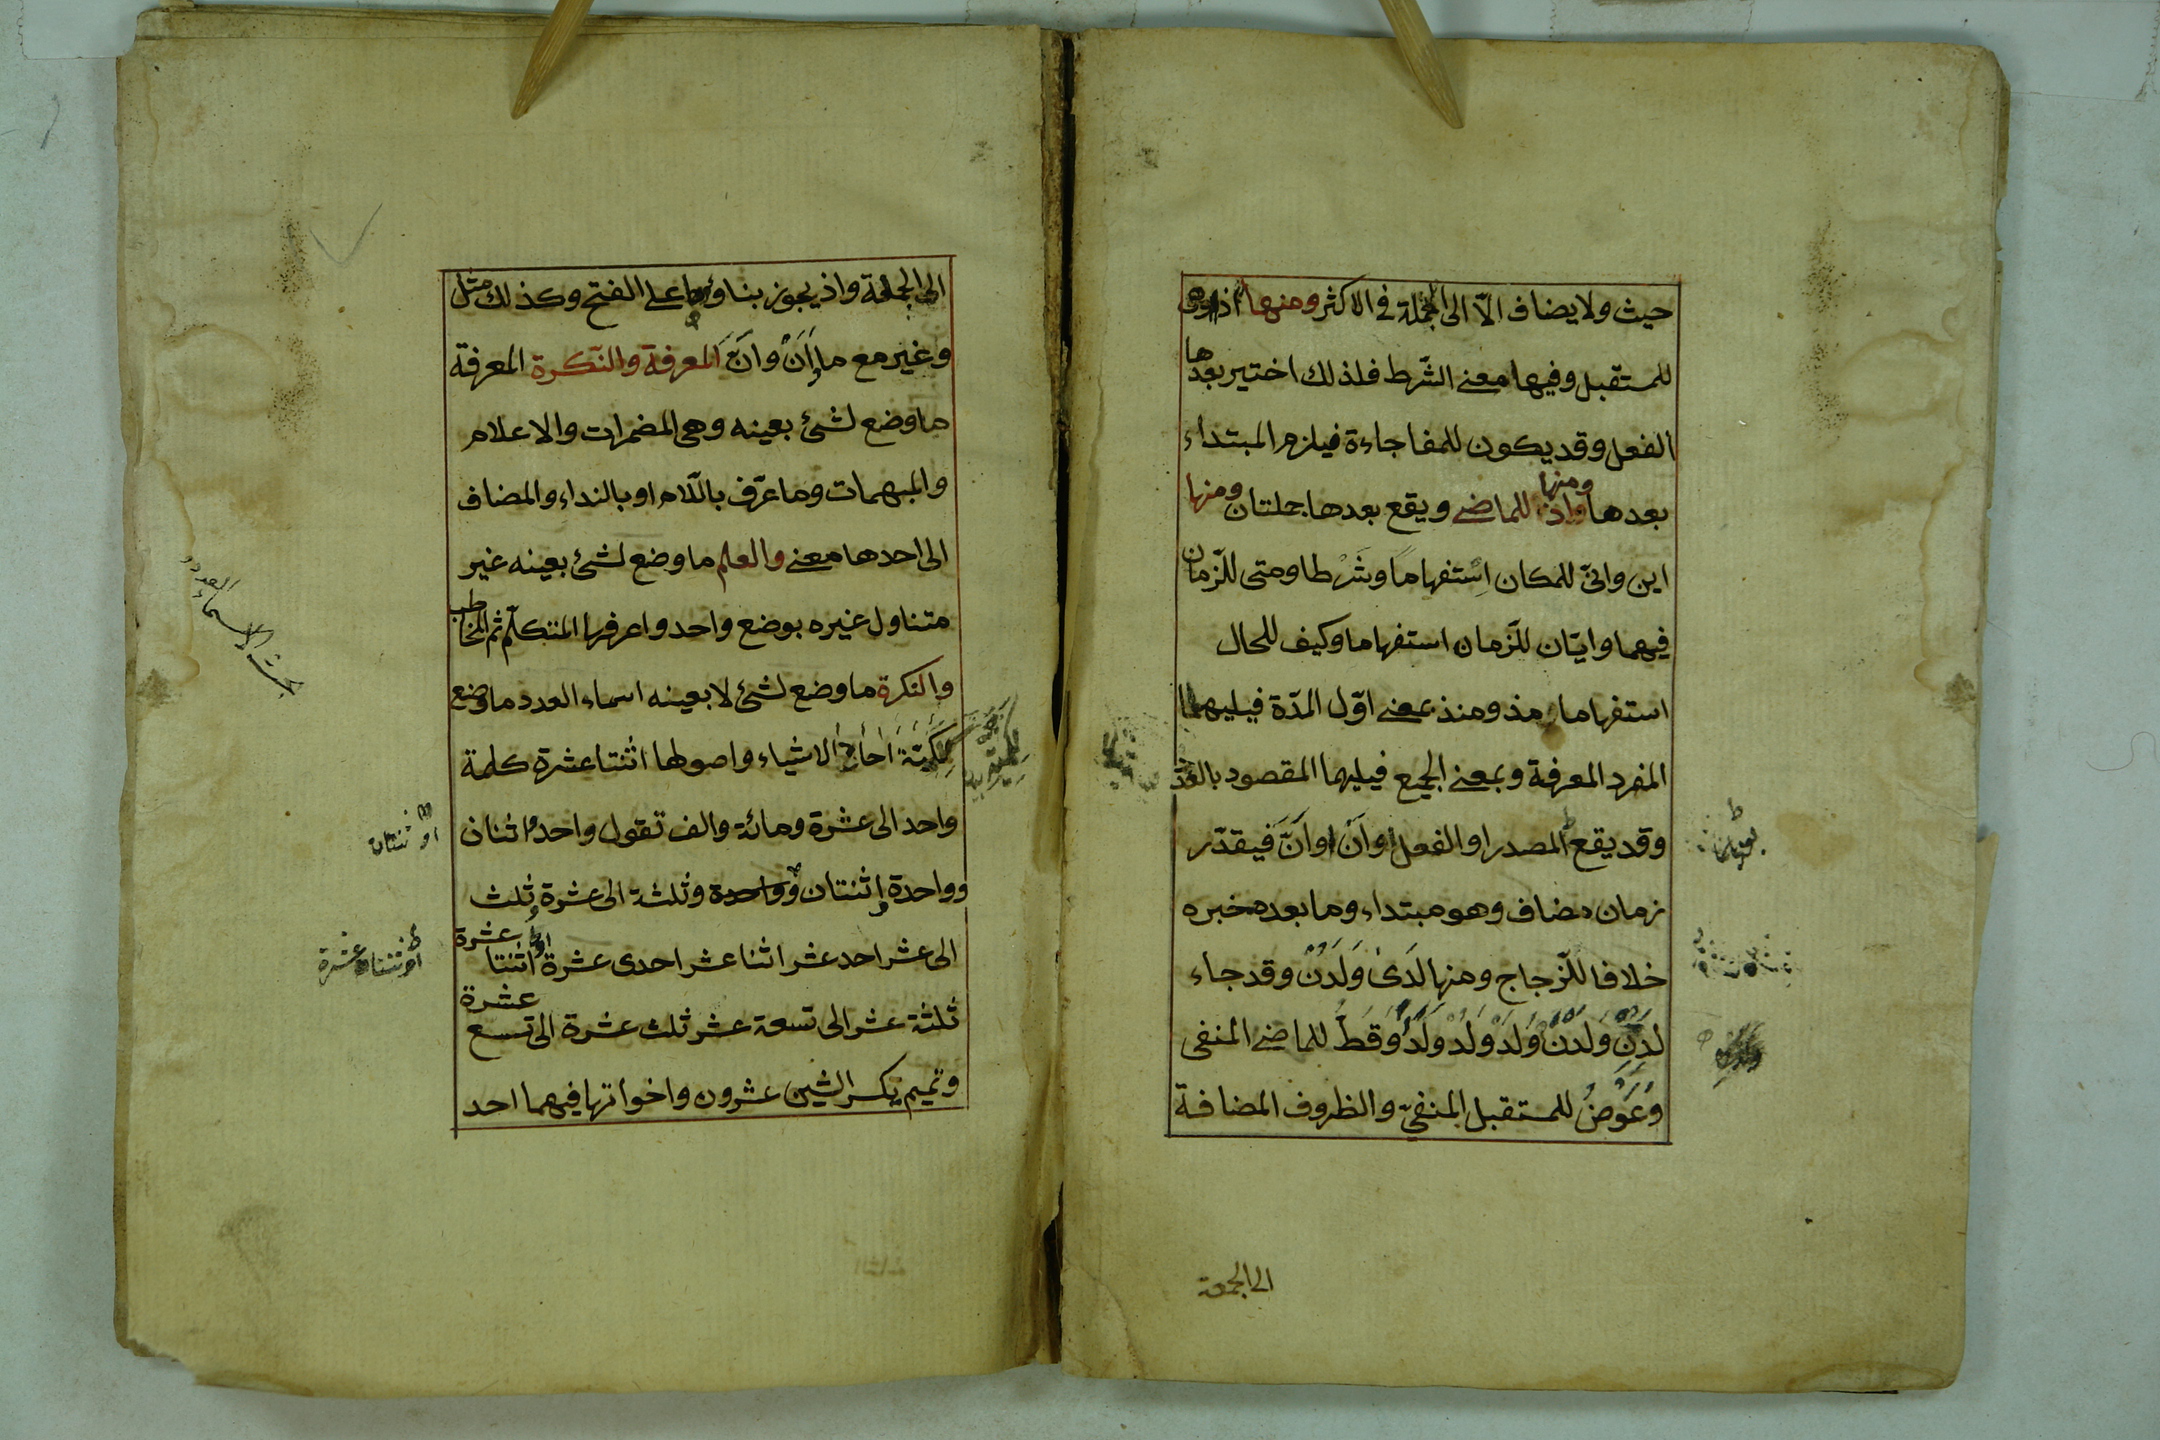 حيث ولا يضاف الّا الى الجملة في الاكثر ومنها اذا وهى
للمستقبل وفيها معنى الشّرط فلذلك اختير بعدها
الفعل وقد يكون للمفاجاءة فيلزم المبتداء
بعدها ومنها واذ للماضى ويقع بعدها جلتان ومنها
اين وانىّ للمكان اِسْتفهامًا وشَرْطا ومتى للزّمان
فيهما وايّان للزّمان استفهاما وكيف للحال
استفهاما ومذ ومنذ بمعنى اوّل المدّة فيليهما
المفرد المعرفة وبمعنى الجميع فيليهما المقصود بالعدد
وقد يقع المصدر او الفعل او اَنْ او اَنَّ فيقدّر
زمان مضاف وهو مبتداء وما بعده خبره
خلافا للزّجاج ومنها لَدىٰ وَلَدُنْ وقد جاء
لَدِنِ وَلَدْنَ وَلَدَ وَلُدْ وَلَدُ وَقَطُّ للماضى المنفى
وَعَوْضُ للمستقبل المنفىّ والظروف المضافة
الى الجمعة
الى الجملة واذ يجوز بناوٴها على الفتح وكذلك مثل
وغير مع ما واَنْ واَنَّ المعرفة والنّكرة المعرفة
ما وضع لشئ بعينه وهى المضمرات والاعلام
والمبهمات وما عرّف باللّام او بالنداء والمضاف
الى احدها معنى والعلم ما وضع لشئ بعينه غير
متناول غيره بوضع واحد واعرفها المتكلّم ثم المخاطب
والنكرة ما وضع لشئ لا بعينه اسماء العدد ما وضع
لِكَمِّيَّة اٰحٰاد الاشياء واصولها اثنتا عشرة كلمة
واحد الى عشرة ومائة والف تقول واحد واثنان
وواحدة واثنتان وواحدة وثلثة الى عشرة وثلث
الى عشر احد عشر اثنا عشر احدى عشرة او اثنتا عشرة
ثلثة عشر الى تسعة عشر ثلث عشرة الى تسع عشرة
وتميم يكسر الشين عشرون واخواتها فيهما احد
بحث الاسماء العدد
او ثنتان
او ثنتان عشرة